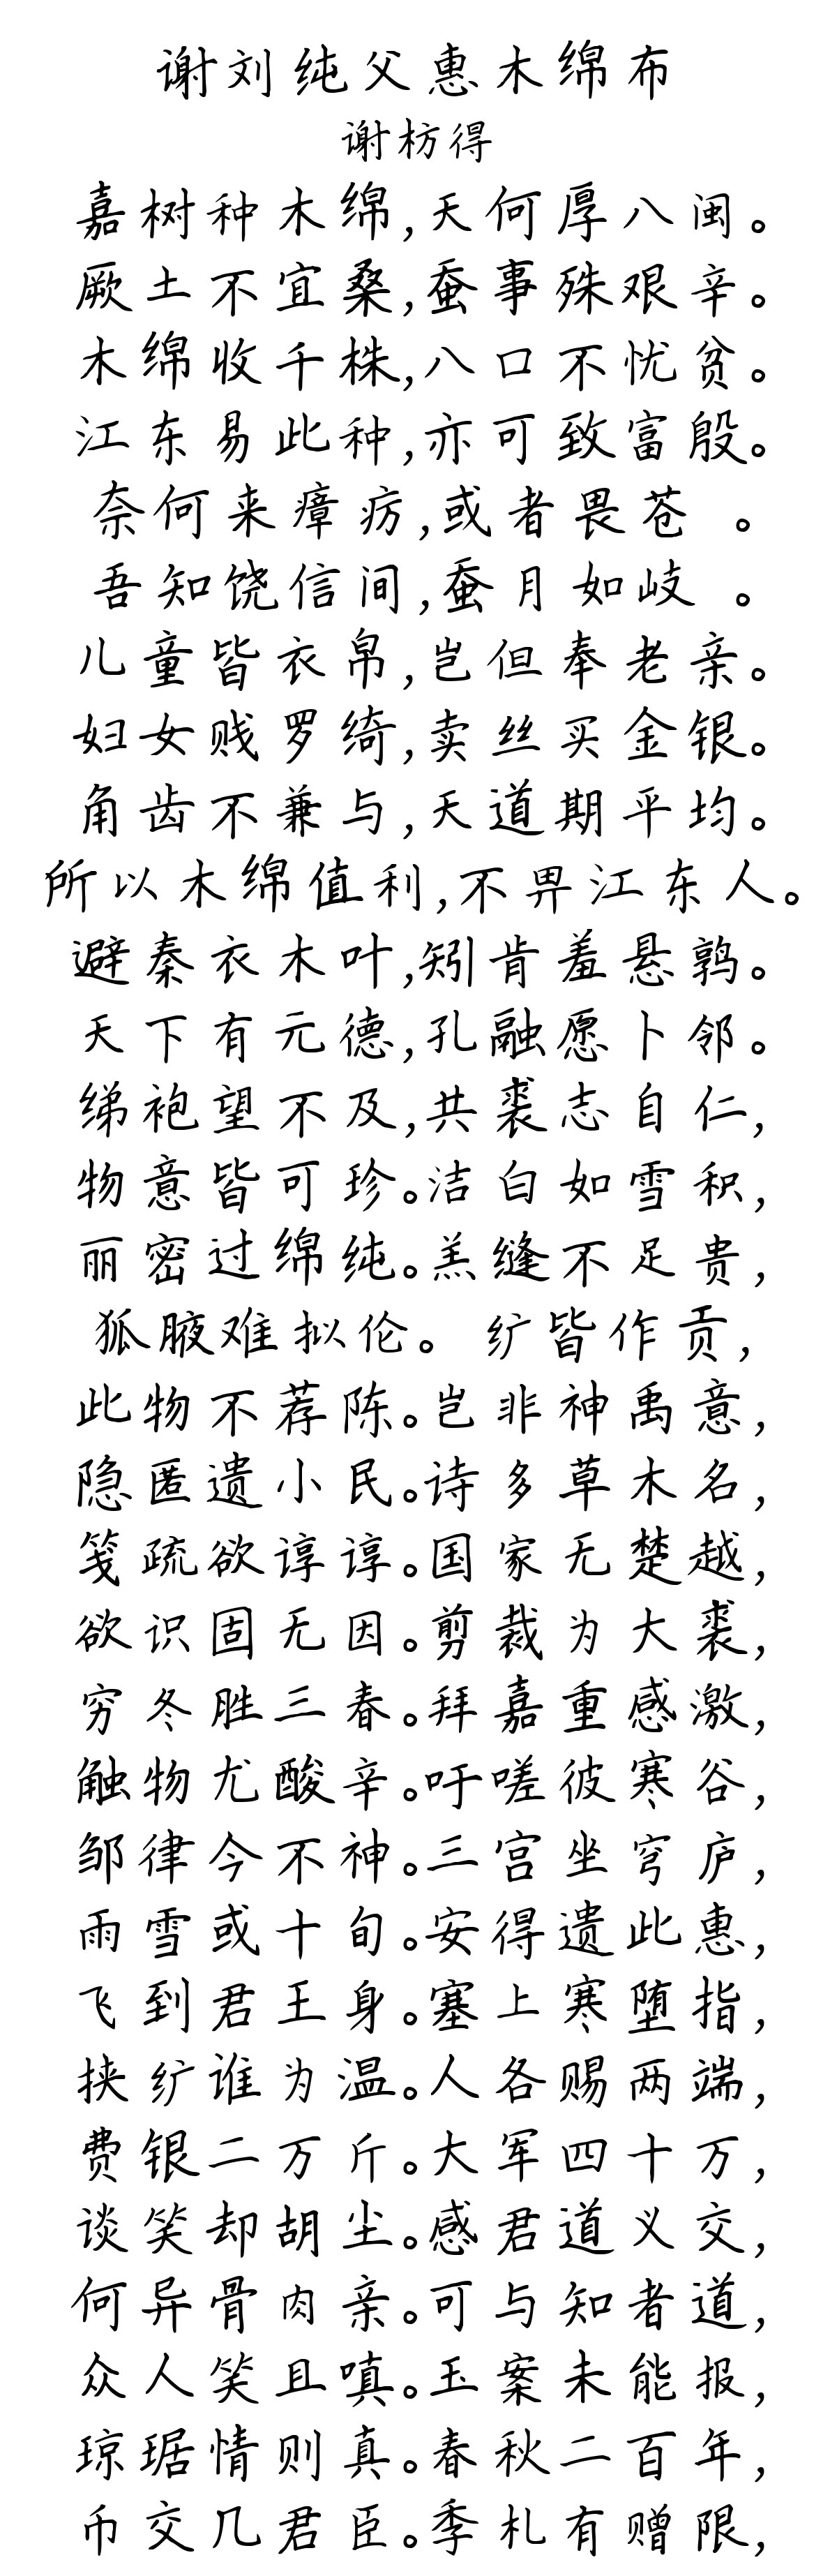 谢刘纯父惠木绵布
谢枋得
嘉树种木绵,天何厚八闽。
厥土不宜桑,蚕事殊艰辛。
木绵收千株,八口不忧贫。
江东易此种,亦可致富殷。
奈何来瘴疠,或者畏苍 。
吾知饶信间,蚕月如岐 。
儿童皆衣帛,岂但奉老亲。
妇女贱罗绮,卖丝买金银。
角齿不兼与,天道期平均。
所以木绵值利,不畀江东人。
避秦衣木叶,矧肯羞悬鹑。
天下有元德,孔融愿卜邻。
绨袍望不及,共裘志自仁,
物意皆可珍。洁白如雪积,
丽密过绵纯。羔缝不足贵,
狐腋难拟伦。 纩皆作贡,
此物不荐陈。岂非神禹意,
隐匿遗小民。诗多草木名,
笺疏欲谆谆。国家无楚越,
欲识固无因。剪裁为大裘,
穷冬胜三春。拜嘉重感激,
触物尤酸辛。吁嗟彼寒谷,
邹律今不神。三宫坐穹庐,
雨雪或十旬。安得遗此惠,
飞到君王身。塞上寒堕指,
挟纩谁为温。人各赐两端,
费银二万斤。大军四十万,
谈笑却胡尘。感君道义交,
何异骨肉亲。可与知者道,
众人笑且嗔。玉案未能报,
琼琚情则真。春秋二百年,
币交几君臣。季札有赠限,